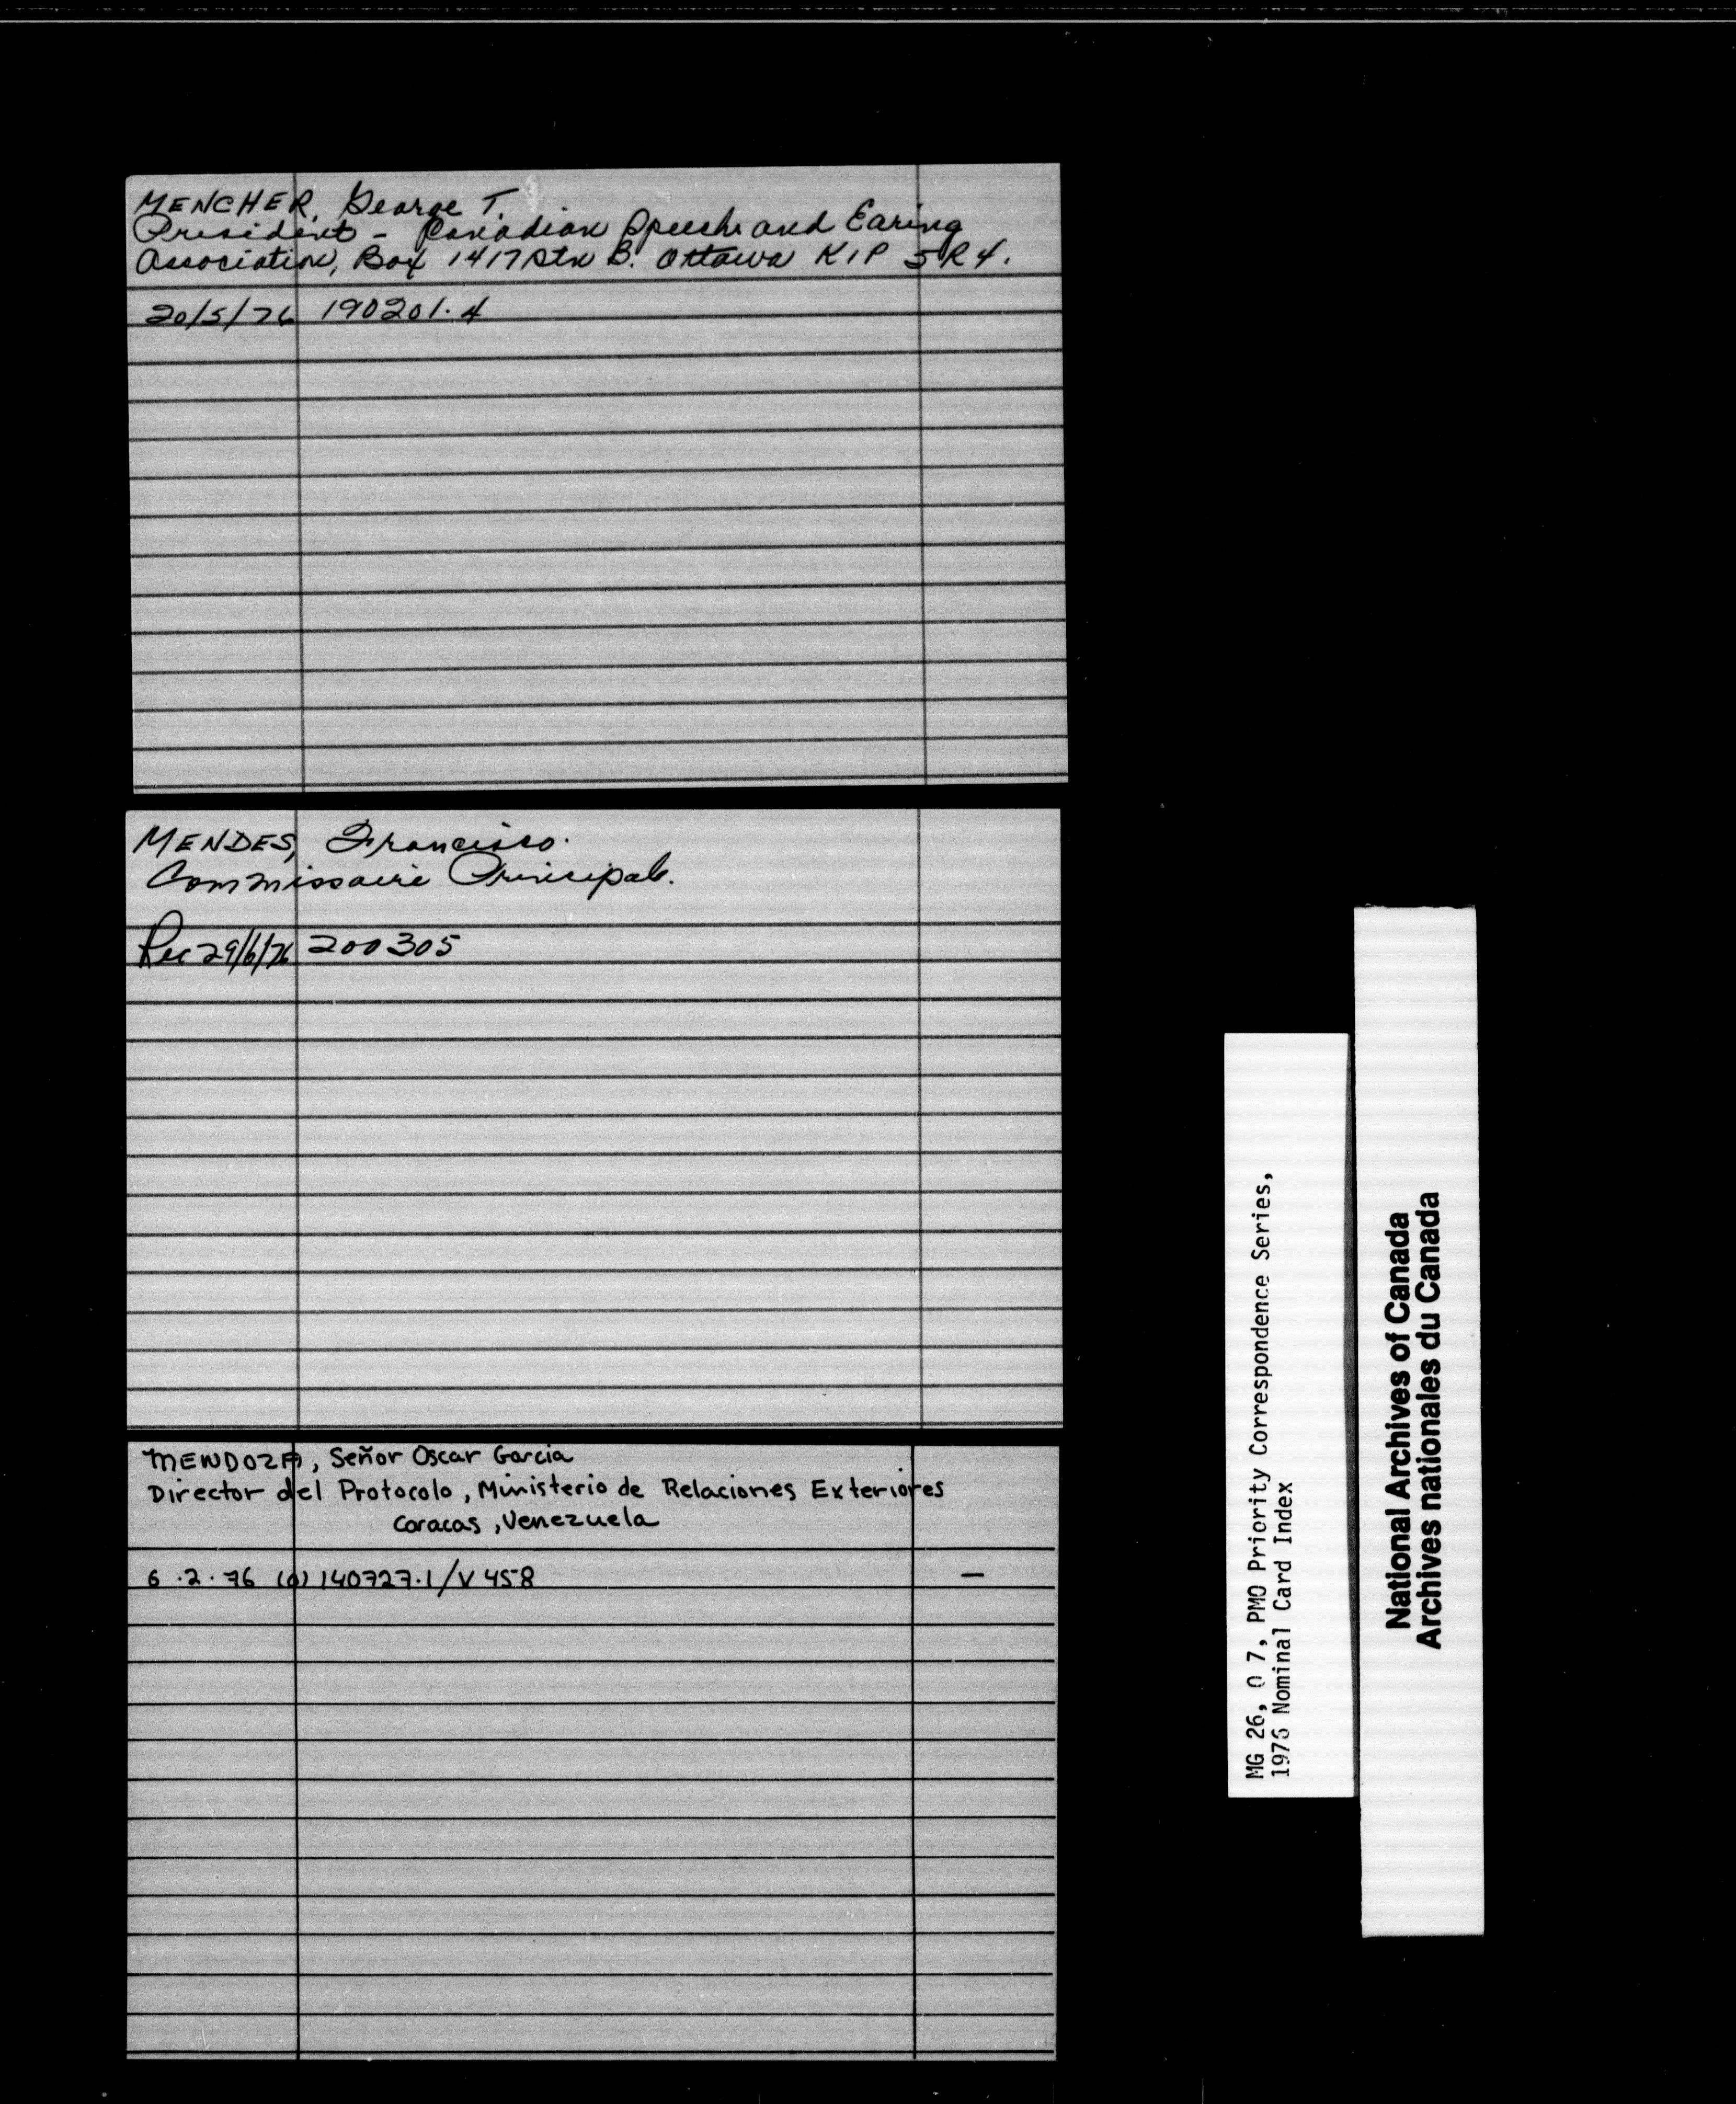 MENCHER, George T.
President - Canadian Speech and Earing
Association, Box 1417 Stn B. Ottawa K1P 5R4.
20/5/76 190201.4
MENDES, Francisco.
Commissaire Principal.
Rec 29/6/76 200305
MENDOZA, Señor Oscar Garcia
Director del Protocolo, Ministerio de Relaciones Exteriores
Caracas, Venezuela
6.2.76 (0) 140727.1/V458 —
MG 26, O 7, PMO Priority Correspondence Series,
1976 Nominal Card Index
National Archives of Canada
Archives nationales du Canada